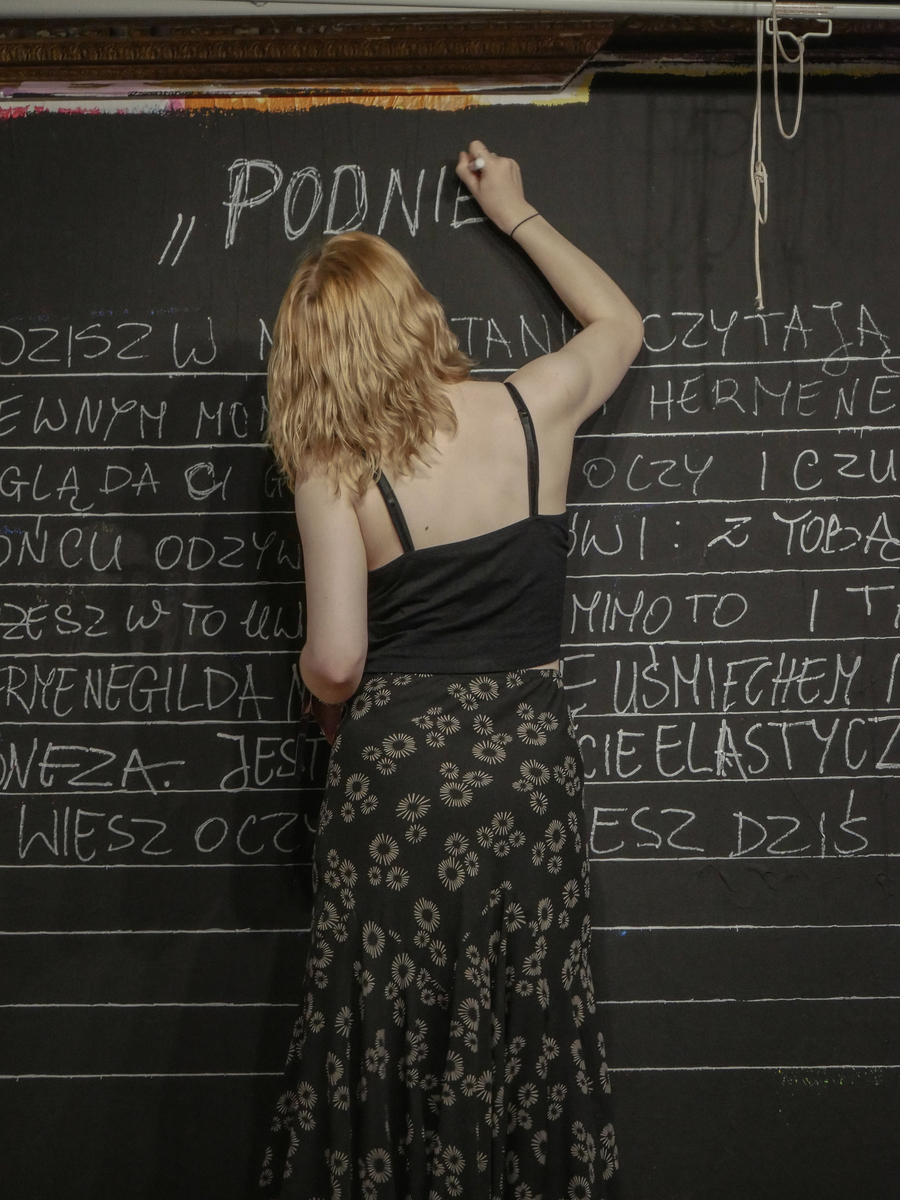 „PODNIE
DZISZ W CZYTAJĄ
EWNYM MO HERMENE
GLĄDA CI G OCZY I CZU
OŃCU ODZYW ÓWI: Z TOBĄ
ZESZ W TO MIMO TO I T
RMENEGILDA UŚMIECHEM
ONEZA. JEST CIE ELASTYCZ
WIESZ OCZY ESZ DZIŚ